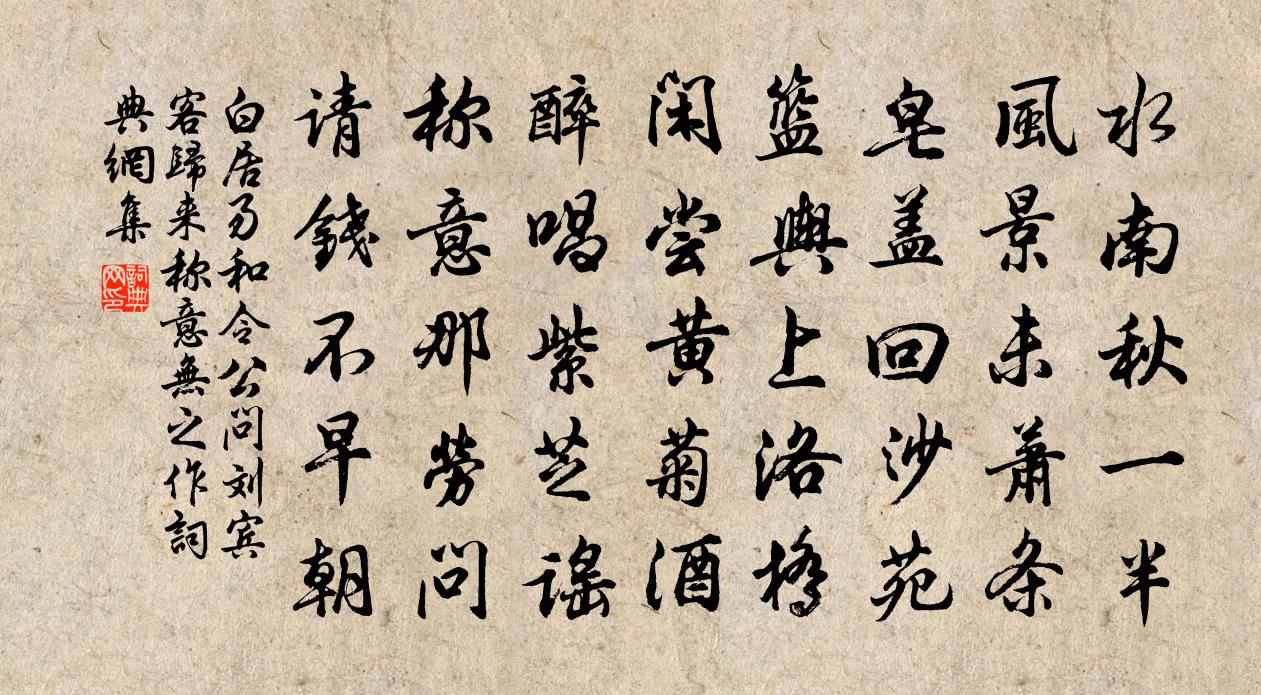 水南秋一半
風景未蕭条
皂盖回沙苑
籃輿上洛橋
闲尝黄菊酒
醉唱紫芝谣
称意那勞问
请錢不早朝
白居易和令公问刘宾
客歸来称意無之作詞
典網集
詞典
网印